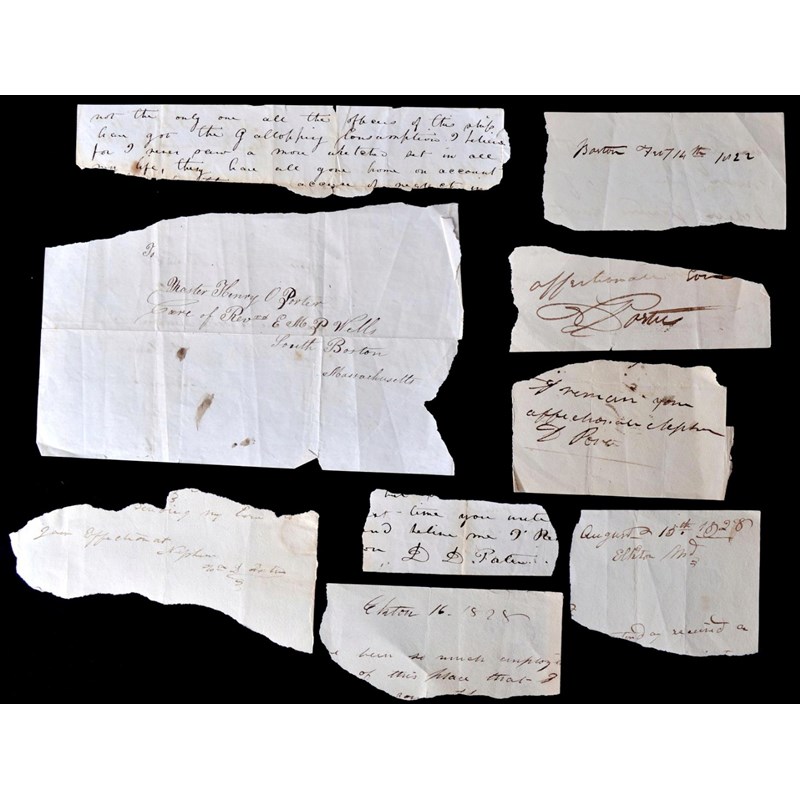 not the only one all the officers of this ship
have got the Gallopping Consumptions I believe
for I never saw a more wretched set in all
my life, they have all gone home on account
account of respect in
Boston 14th 1822
To
Master Henry O Porter
Care of Revnd E M P Wells
South Boston
Massachusetts
affectionate Son
D Porter
I remain your
affectionate Nephew
D Porter
my
Your Affectionate
Nephew
Porter
time you write
and believe me I Re
D D
August 15th 1828
Elkton Md
received a
Elkton 16. 1828
been so much employ
of this place that I